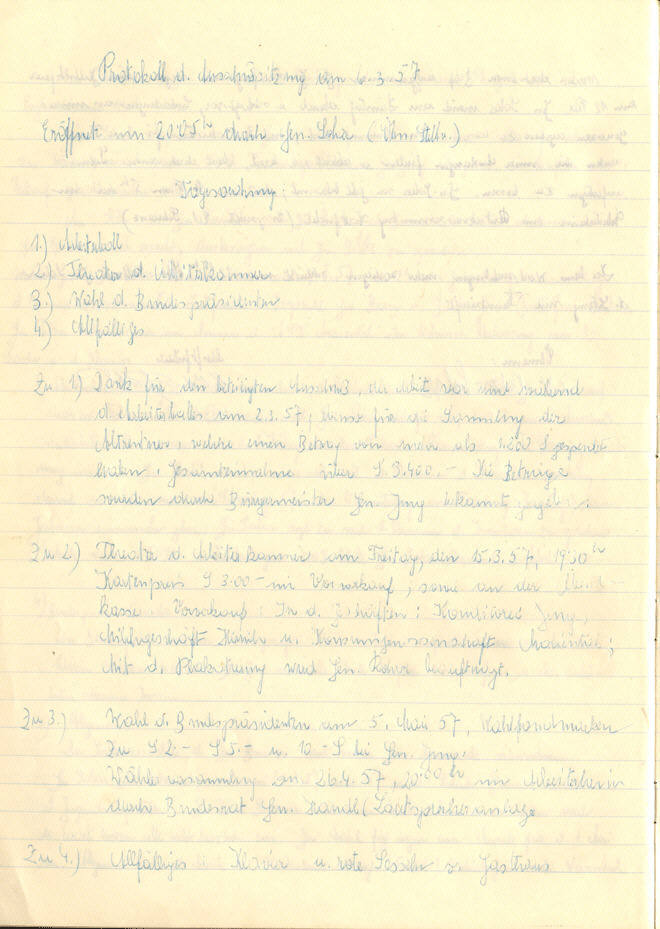 Protokoll d. Ausschußsitzung vom 6.3.57
Eröffnet um 20.05 h durch Gen. (Obm. Stellv.)
Tagesordnung:
1.) Arbeiterball
2.) Theater d. Arbeiterkammer
3.) Wahl d. Bundespräsidenten
4.) Allfälliges
Zu 1.) Dank für den beteiligten Ausschuß, der Arbeit vor und während
d. Arbeiterballes vom 2.3.57, für die Sammlung der
welche einen Betrag von mehr als 1.200 S
haben. Gesamteinnahme über S 3.400.- Die Beträge
wurden durch Bürgermeister Gen. Jung bekannt
Zu 2.) Theater d. Arbeiterkammer am Freitag, den 15.3.57, 19 30 h
Kartenpreis S 3.00 - im Vorverkauf, sowie an der
kasse. Vorverkauf: In d. Geschäften: Jung,
Milchgeschäft u. Konsumgenossenschaft
Mit d. wird Gen. beauftragt.
Zu 3.) Wahl d. Bundespräsidenten am 5. Mai 57, Wahlfondmarken
zu S 2.- S 5.- u. 10 - S bei Gen. Jung.
Wählerversammlung am 26.4.57, 20 00 h im Arbeiterheim
durch Bundesrat Gen. (Lautsprecheranlage
Zu 4.) Allfälliges u. rote Gasthaus